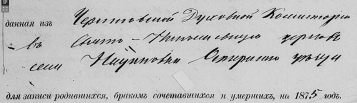 данная изъ Черниговской Духовной Консисторіи
въ Свято - Николаевскую церковь
села Наумовки Сосницкаго уѣзда
для записи родившихся, бракомъ сочетавшихся и умершихъ, на 1875 годъ.